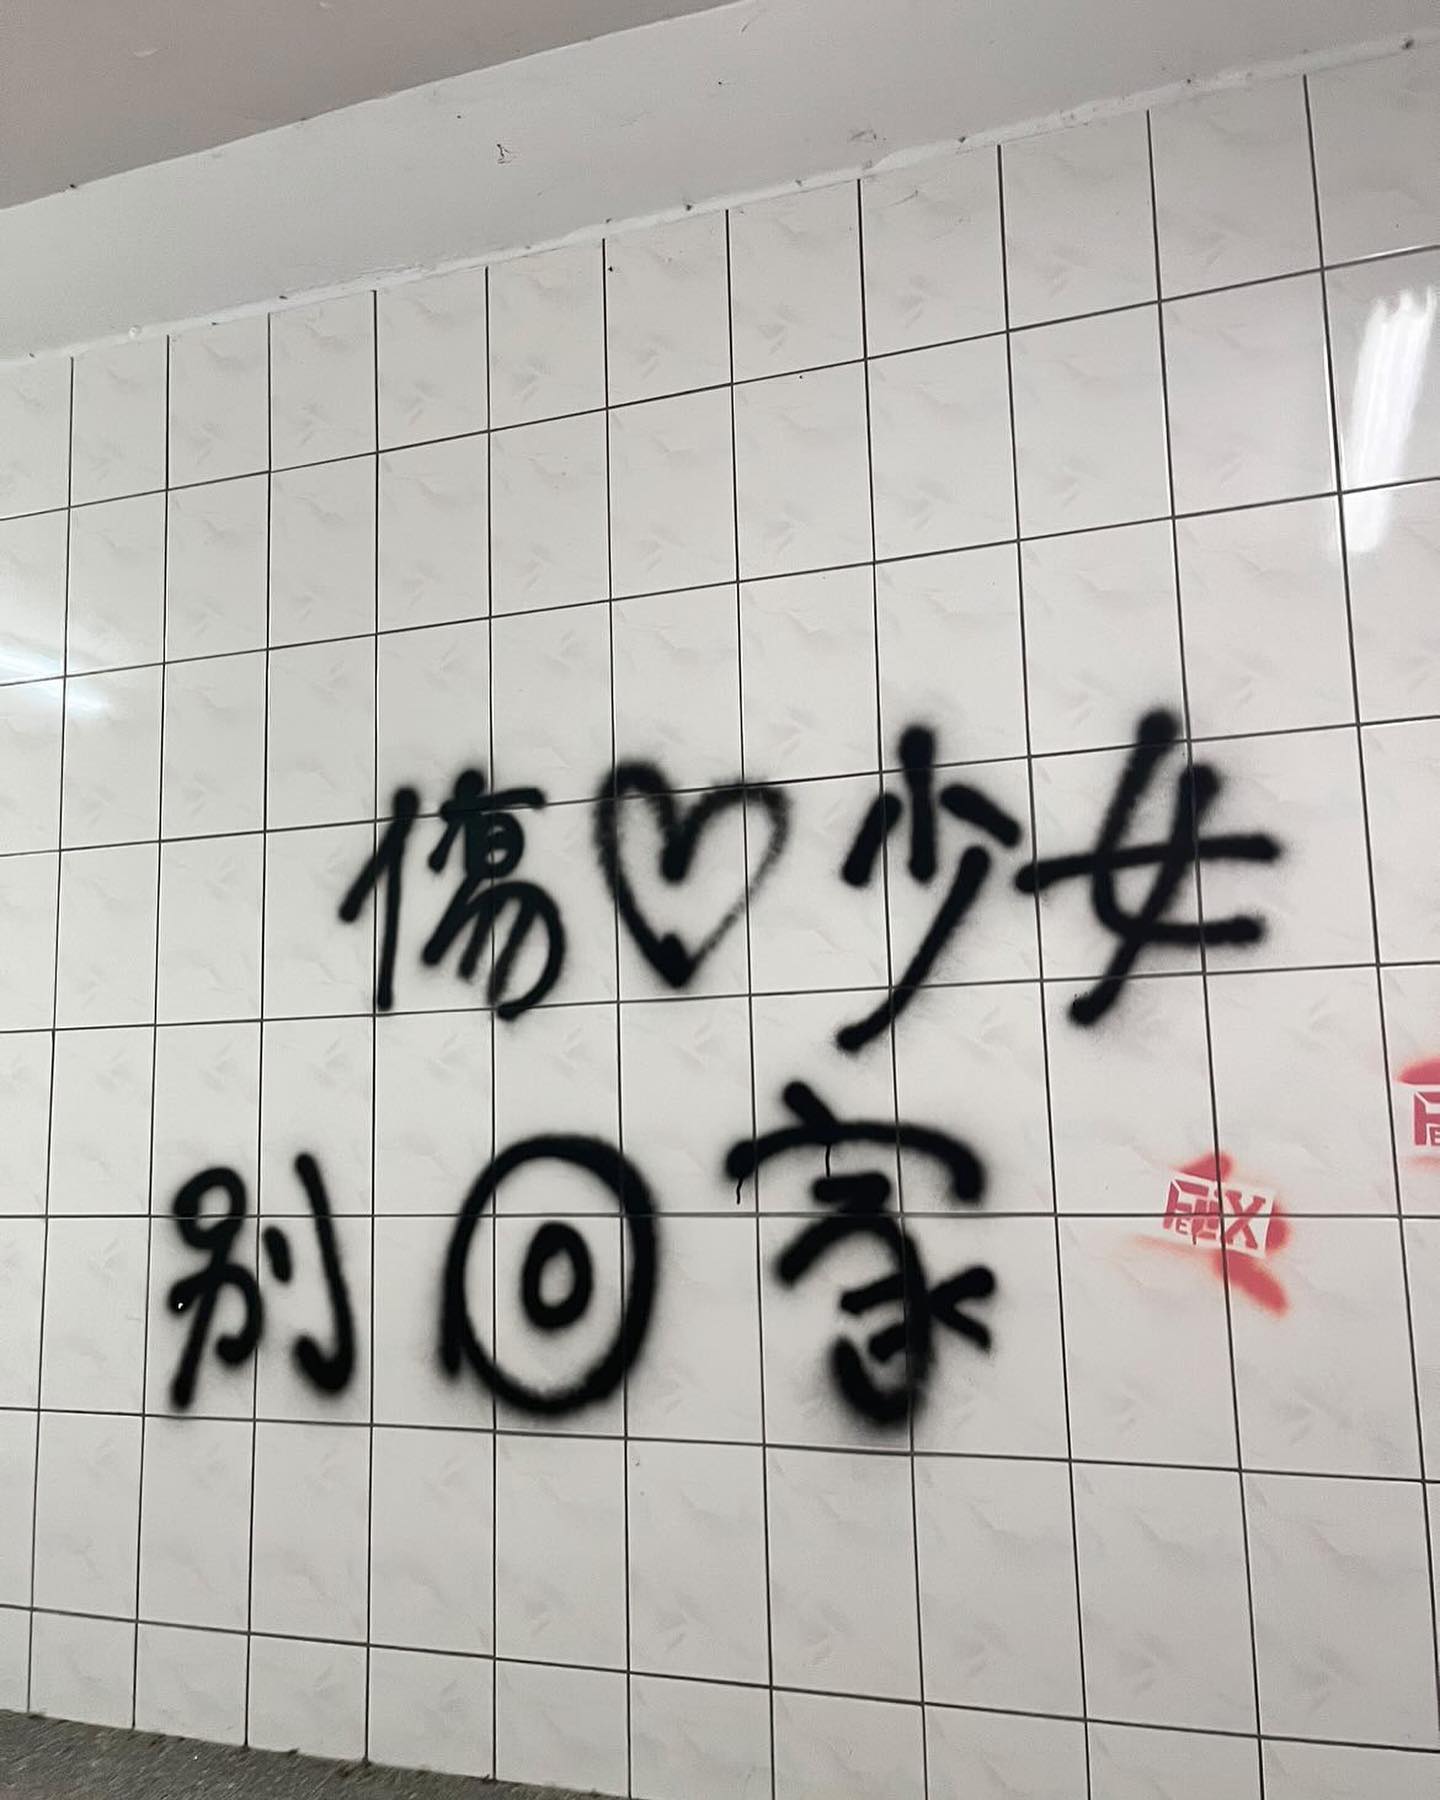 傷♡少女
別回家